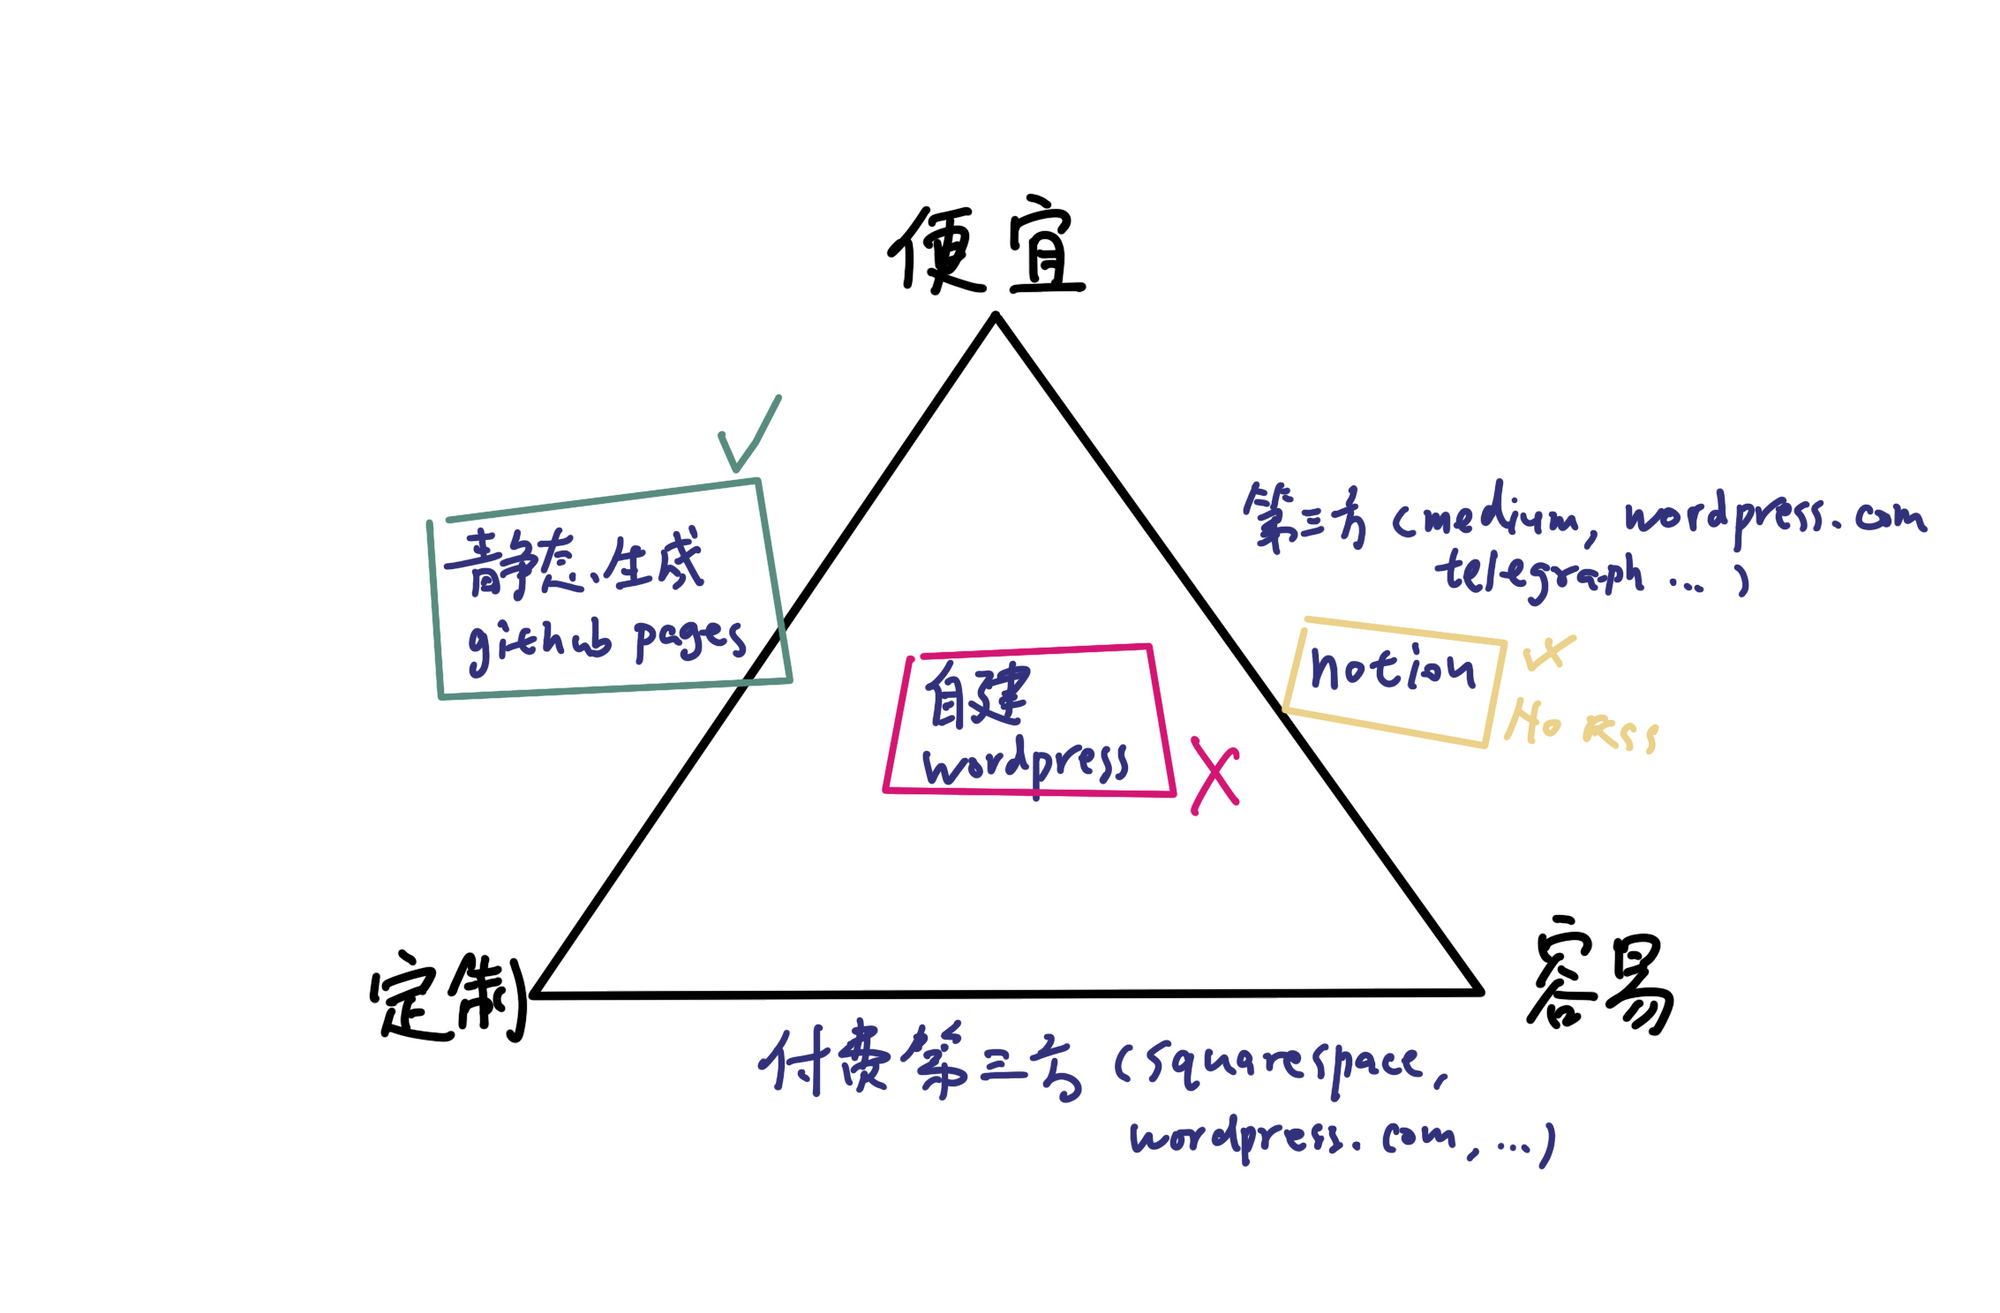 便宜
静态生成
github pages
第三方 (medium, wordpress.com
telegraph ...)
notion
No RSS
自建
wordpress
X
定制
容易
付费第三方 (squarespace,
wordpress.com, ...)